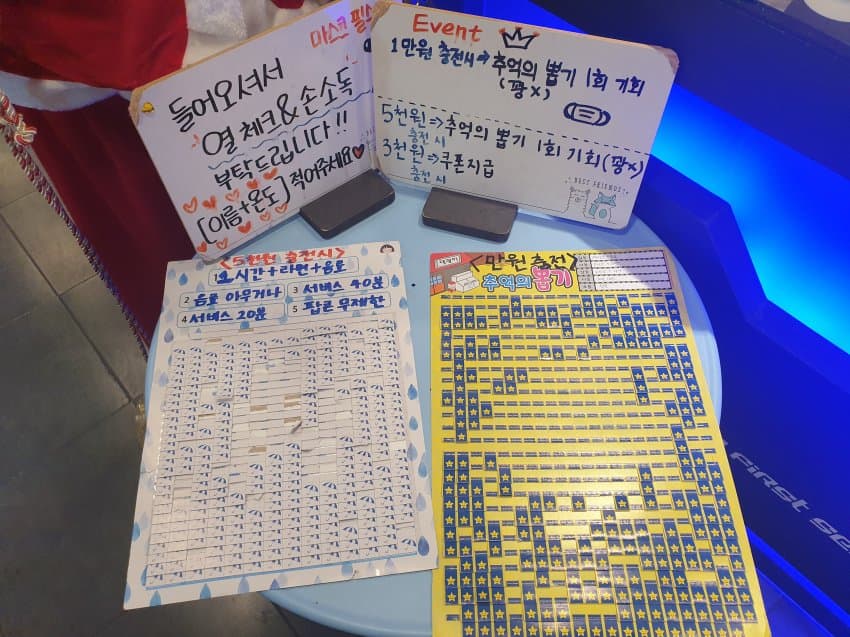 마스크 필수
들어오셔서
열 체크 & 손소독
부탁드립니다!!
[이름+온도] 적어주세요
Event
1만원 충전시→추억의 뽑기 1회 기회
(꽝X)
5천원→추억의 뽑기 1회 기회(꽝X)
충전 시
3천원→쿠폰지급
충전 시
BEST FRIENDS
<5천원 충전시>
1 1시간+라면+음료
2 음료 아무거나
3 서비스 40분
4 서비스 20분
5 팝콘 무제한
<만원 충전>
추억의 뽑기
FIRST SE